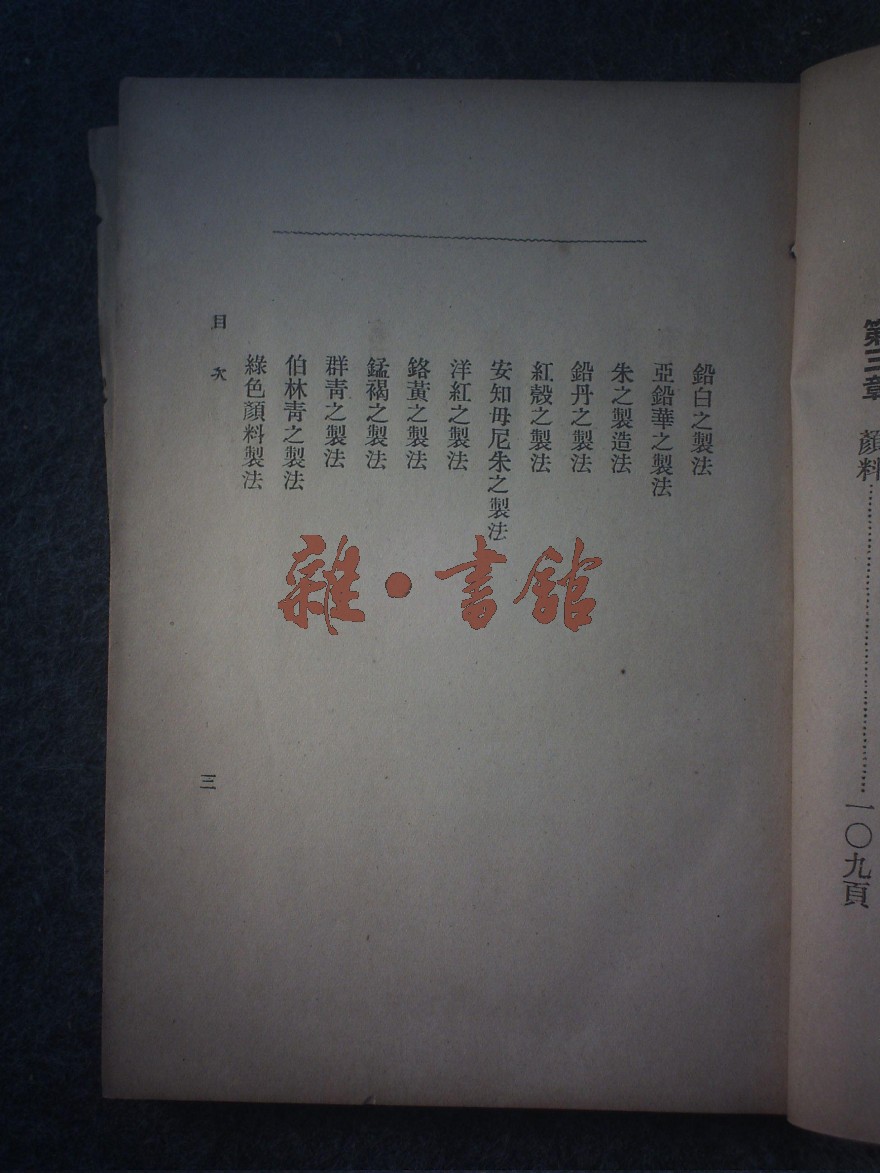 第三章　顏料……………一〇九頁
鉛白之製法
亞鉛華之製法
朱之製造法
鉛丹之製法
紅殼之製法
安知毋尼朱之製法
洋紅之製法
鉻黃之製法
錳褐之製法
群青之製法
伯林青之製法
綠色顏料製法
目次
三
雜·書館